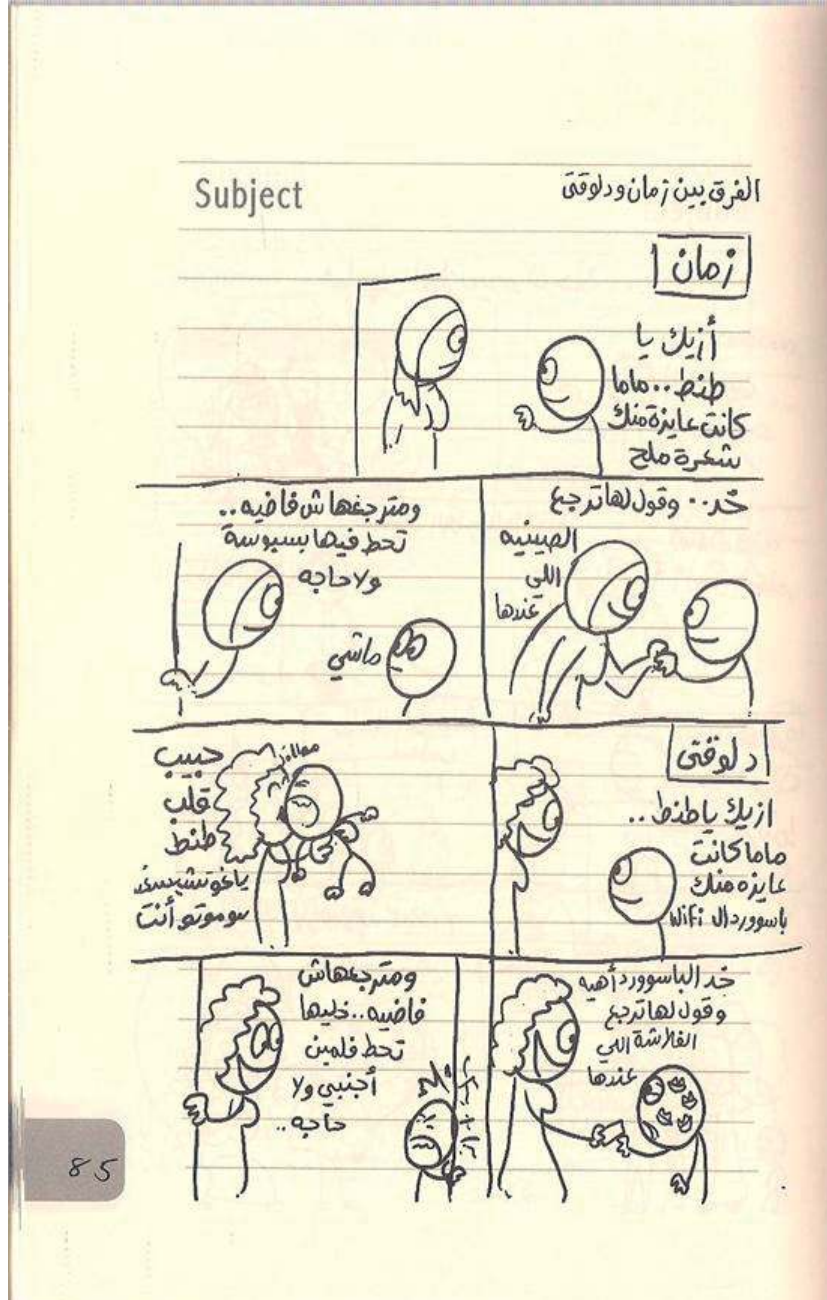 Subject
الفرق بين زمان ودلوقتى
زمان
أزيك يا
طنط.. ماما
كانت عايزة منك
شعرة ملح
خد.. وقول لها ترجع
الصينيه
اللي
عندها
ومترجعهاش فاضيه..
تحط فيها بسبوسة
ولا حاجه
ماشي
دلوقتى
ازيك يا طنط..
ماما كانت
عايزه منك
باسوورد ال Wifi
حبيب
قلب
طنط
أنت
خد الباسوورد أهيه
وقول لها ترجع
الفلاشة اللي
عندها
ومترجعهاش
فاضيه.. خليها
تحط فلمين
أجنبي ولا
حاجه..
85